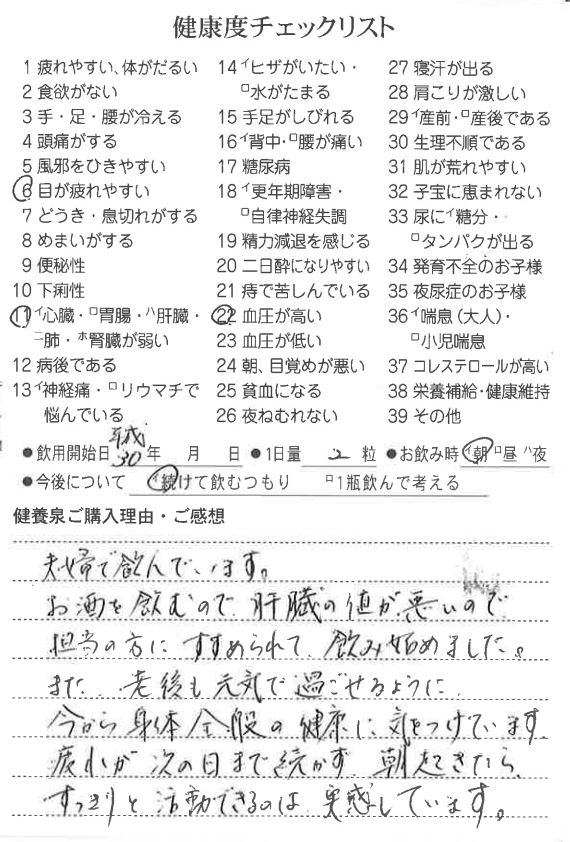 健康度チェックリスト
1 疲れやすい、体がだるい
2 食欲がない
3 手・足・腰が冷える
4 頭痛がする
5 風邪をひきやすい
6 目が疲れやすい
7 どうき・息切れがする
8 めまいがする
9 便秘性
10 下痢性
11 イ心臓・ロ胃腸・ハ肝臓・
ニ肺・ホ腎臓が弱い
12 病後である
13 イ神経痛・ロリウマチで
悩んでいる
14 イヒザがいたい・
ロ水がたまる
15 手足がしびれる
16 イ背中・ロ腰が痛い
17 糖尿病
18 イ更年期障害・
ロ自律神経失調
19 精力減退を感じる
20 二日酔になりやすい
21 痔で苦しんでいる
22 血圧が高い
23 血圧が低い
24 朝、目覚めが悪い
25 貧血になる
26 夜ねむれない
27 寝汗が出る
28 肩こりが激しい
29 イ産前・ロ産後である
30 生理不順である
31 肌が荒れやすい
32 子宝に恵まれない
33 尿にイ糖分・
ロタンパクが出る
34 発育不全のお子様
35 夜尿症のお子様
36 イ喘息(大人)・
ロ小児喘息
37 コレステロールが高い
38 栄養補給・健康維持
39 その他
●飲用開始日 平成30年 月 日 ●1日量 2 粒 ●お飲み時 イ朝 ロ昼 ハ夜
●今後について イ続けて飲むつもり ロ1瓶飲んで考える
健養泉ご購入理由・ご感想
夫婦で飲んでいます。
お酒を飲むので 肝臓の値が悪いので
担当の方に すすめられて、飲み始めました。
また、老後も元気で過ごせるように
今から身体全般の健康に気をつけています。
疲れが次の日まで続かず、朝起きたら、
すっきりと活動できるのは実感しています。